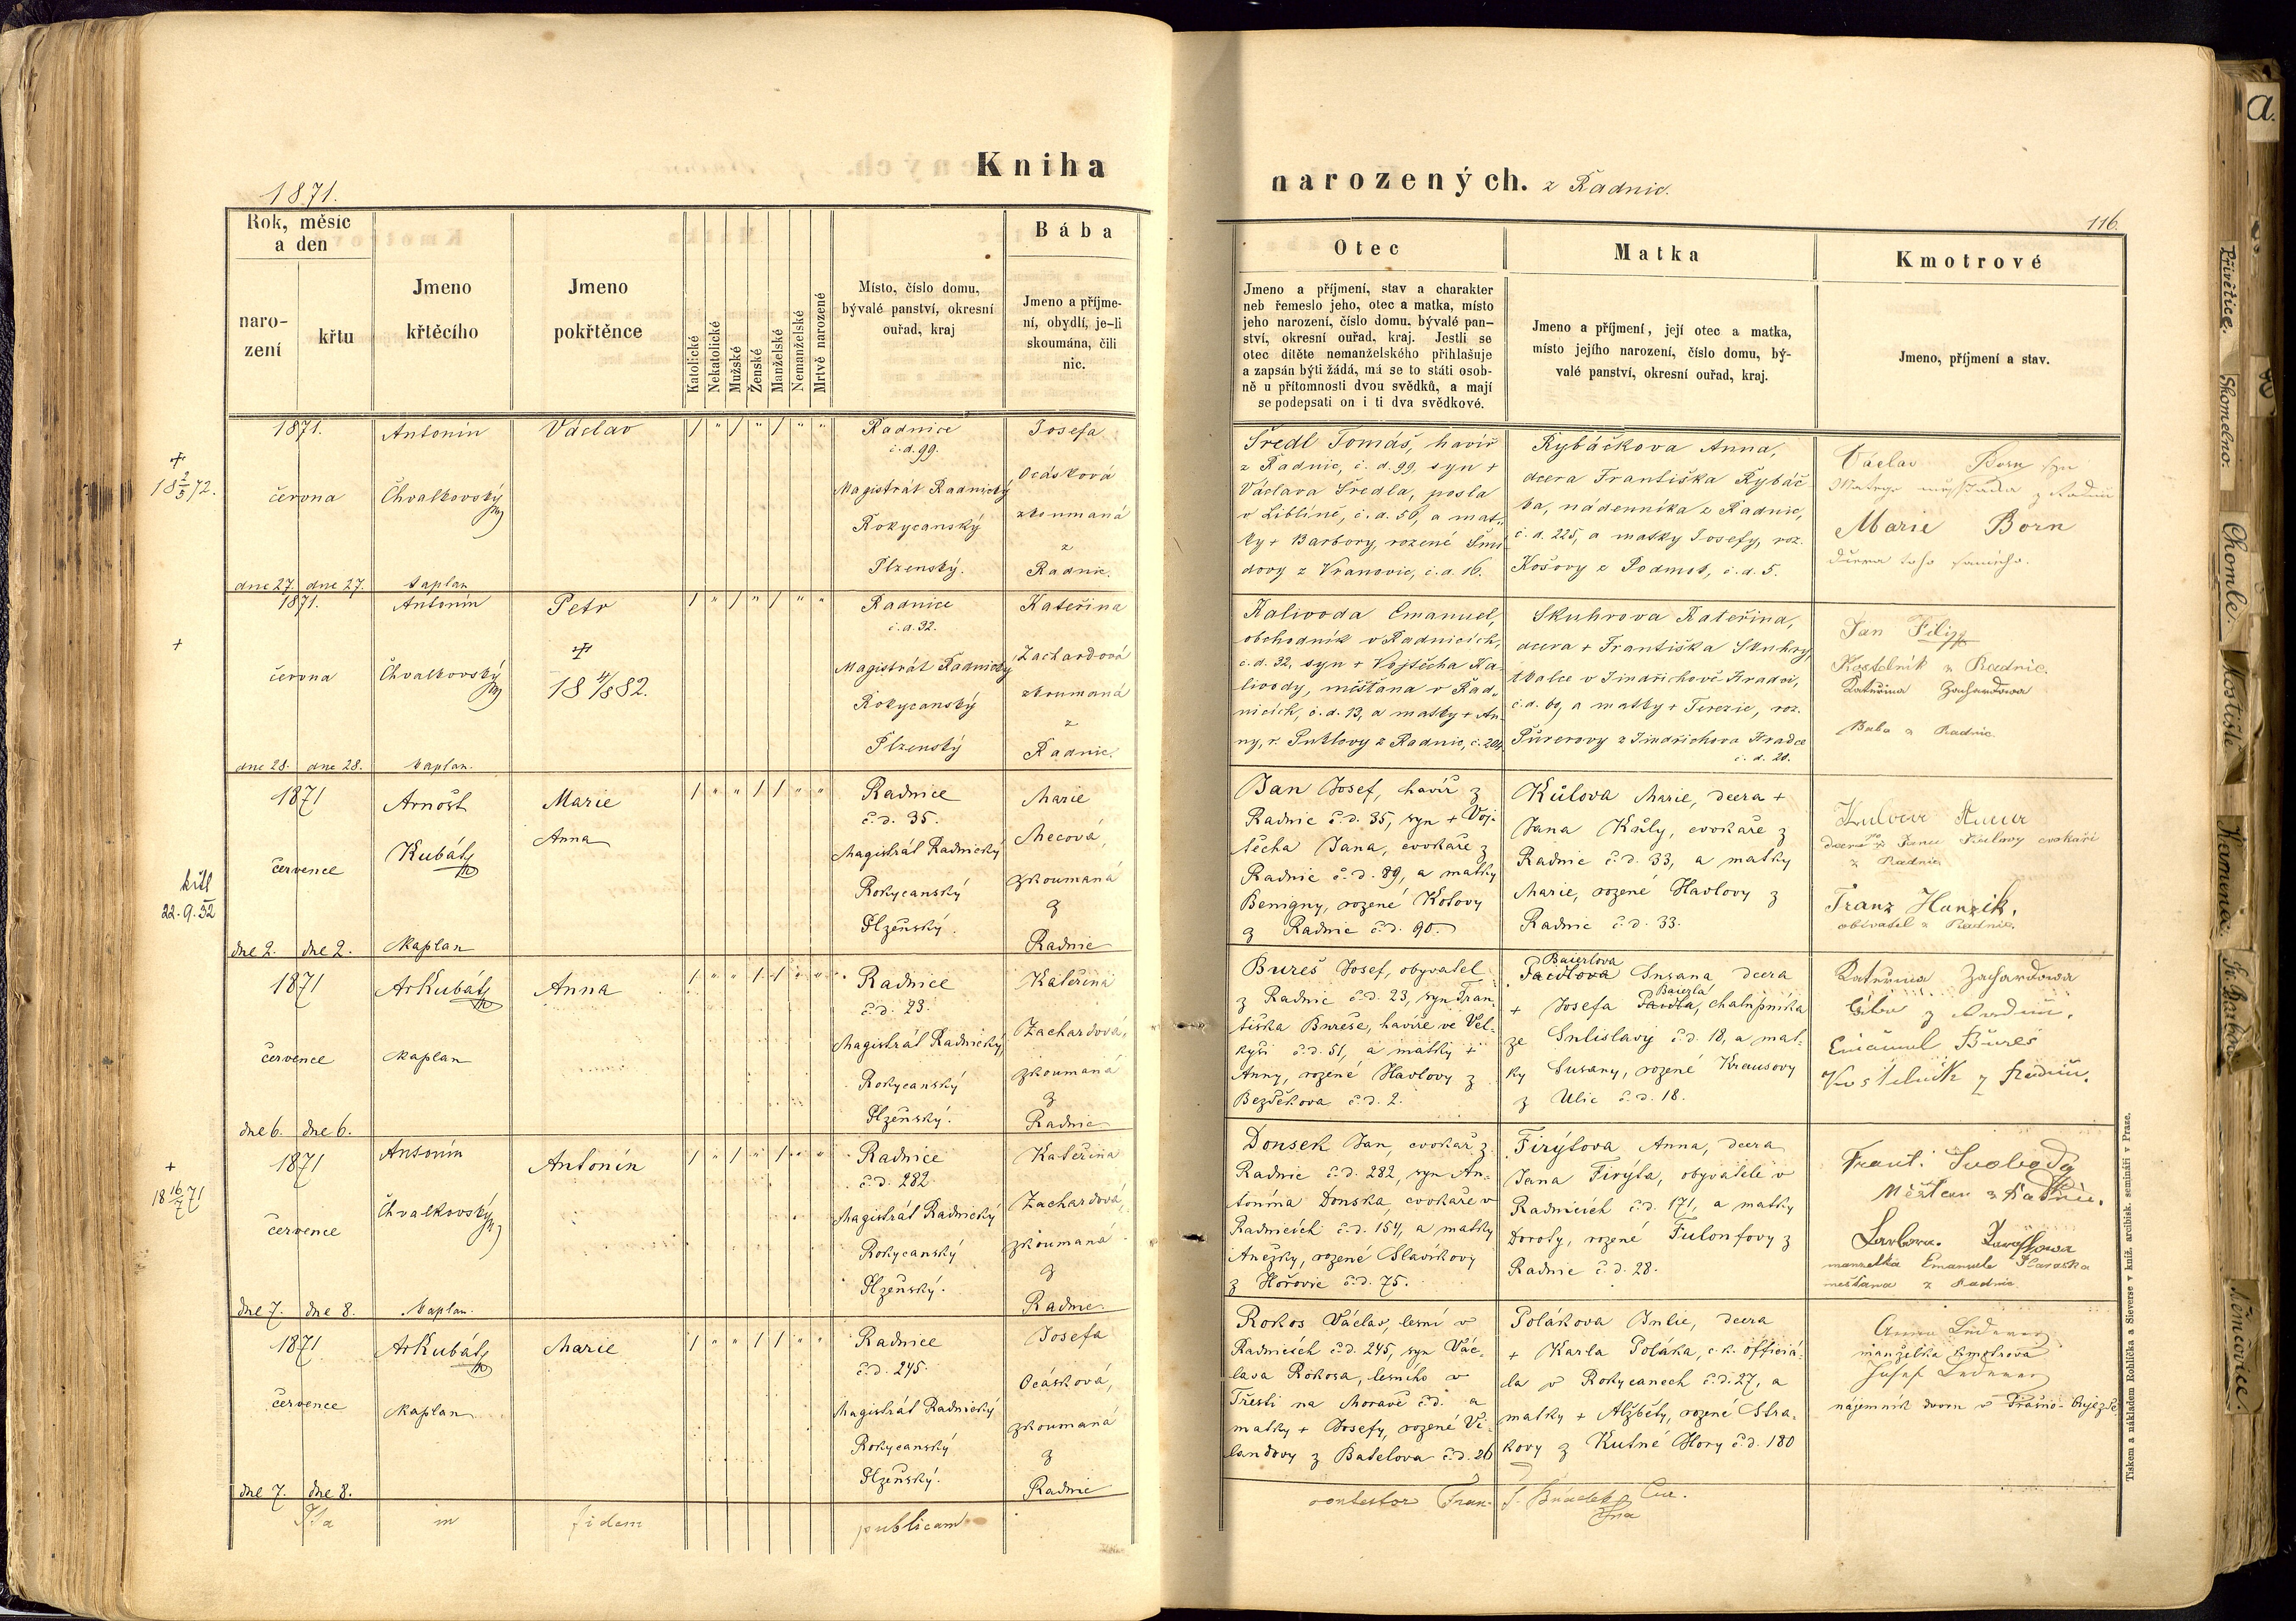 Kniha
narozených. z Radnic.
1871.
116.
Rok, měsíc
a den
naro-
zení
křtu
Jmeno
křtěcího
Jmeno
pokřtěnce
Katolické
Nekatolické
Mužské
Ženské
Manželské
Nemanželské
Mrtvě narozené
Místo, číslo domu,
bývalé panství, okresní
ouřad, kraj
Bába
Jmeno a příjme-
ní, obydlí, je-li
skoumána, čili
nic.
Otec
Jmeno a příjmení, stav a charakter
neb řemeslo jeho, otec a matka, místo
jeho narození, číslo domu, bývalé pan-
ství, okresní ouřad, kraj. Jestli se
otec dítěte nemanželského přihlašuje
a zapsán býti žádá, má se to státi osob-
ně u přítomnosti dvou svědků, a mají
se podepsati on i ti dva svědkové.
Matka
Jmeno a příjmení, její otec a matka,
místo jejího narození, číslo domu, bý-
valé panství, okresní ouřad, kraj.
Kmotrové
Jmeno, příjmení a stav.
+
18 2/5 72.
1871.
června
dne 27. dne 27.
Antonín
Chvalkovský
kaplan
Václav
Radnice
č. d. 99.
Magistrát Radnický
Rokycanský
Plzenský.
Josefa
Ocásková
zkoumaná
z
Radnic.
Šredl Tomáš, havíř
z Radnic, č. d. 99, syn +
Václava Šredla, posla
v Liblíně, č. d. 56, a mat-
ky + Barbory, rozené Šmí
dovy z Vranovic, č. d. 16.
Rybáčkova Anna,
dcera Františka Rybáč
ka, nádenníka z Radnic,
č. d. 225, a matky Josefy, roz.
Košovy z Podmok, č. d. 5.
Václav Born syn
z Radnic
Marie Born
dcera toho samého.
+
1871.
června
dne 28. dne 28.
Antonín
Chvalkovský
kaplan.
Petr
+
18 11/8 82.
Radnice
č. d. 32.
Magistrát Radnický
Rokycanský
Plzenský
Kateřina
Zachardová
zkoumaná
z
Radnic.
Kalivoda Emanuel,
obchodník v Radnicích,
č. d. 32, syn + Vojtěcha Ka-
livody, měšťana v Rad-
nicích, č. d. 13, a matky + An-
ny, r. z Radnic, č. 204
Skuhrova Kateřina,
dcera + Františka Skuhry,
tkalce v Jindřichově Hradci,
č. d. 69, a matky + Terezie, roz.
z Jindřichova Hradce
č. d. 28.
Jan Filip
Kostelník z Radnic.
Kateřina Zachardowa
Baba z Radnic.
křtl
22. 9. 52
1871
července
dne 2. dne 2.
Arnošt
Kubát
kaplan
Marie
Anna
Radnice
č. d. 35.
Magistrát Radnický
Rokycanský
Plzeňský.
Marie
Mecová,
zkoumaná
z
Radnic
Jan Josef, havíř z
Radnic č. d. 35, syn + Voj-
těcha Jana, cvokaře z
Radnic č. d. 89, a matky
Benigny, rozené Kotovy
z Radnic č. d. 90.
Kůlova Marie, dcera +
Jana Kůly, cvokaře z
Radnic č. d. 33, a matky
Marie, rozené Havlovy z
Radnic č. d. 33.
Kulova Anna
z Radnic
Franz Hanzik,
obivatel z Radnic.
1871
července
dne 6. dne 6.
Ar Kubát
kaplan
Anna
Radnice
č. d. 23.
Magistrát Radnický
Rokycanský
Plzeňský.
Kateřina
Zachardová,
zkoumaná
z
Radnic
Bureš Josef, obyvatel
z Radnic č. d. 23, syn Fran-
tiška Bureše, havíře ve Vel-
kyši č. d. 51, a matky +
Anny, rozené Havlovy z
Bezděkova č. d. 2.
Baierlova
Susana dcera
Baierla
+ Josefa chalupníka
ze Sulislavy č. d. 18, a mat-
ky Susany, rozené Krausovy
z Ulic č. d. 18.
Kateřina Zachardowa
Emanuel Bureš
Kostelník z Radnic.
+
18 16/7 71
1871
července
dne 7. dne 8.
Antonín
Chvalkovský
kaplan.
Antonín
Radnice
č. d. 282
Magistrát Radnický
Rokycanský
Plzeňský.
Kateřina
Zachardová,
zkoumaná
z
Radnic
Dousek Jan, cvokař z
Radnic č. d. 282, syn An-
tonína Douska, cvokaře v
Radnicích č. d. 154, a matky
Anežky, rozené Slavíkovy
z Hořovic č. d. 75.
Firýtova Anna, dcera
Jana Firyta, obyvatele v
Radnicích č. d. 171, a matky
Doroty, rozené Fulonfovy z
Radnic č. d. 28.
Frant. Svoboda
Měšťan z Radnic.
manzelka Emanuele
mešťana z Radnic
1871
července
dne 7. dne 8.
Ar Kubát
kaplan
Marie
Radnice
č. d. 245.
Magistrát Radnický
Rokycanský
Plzeňský.
Josefa
Ocásková,
zkoumaná
z
Radnic
Rokos Václav, lesní v
Radnicích č. d. 245, syn Vác-
lava Rokosa, lesního v
Třešti na Moravě č. d. a
matky + Josefy, rozené Vi-
landovy z Batelova č. d. 26
Polákova Julie, dcera
+ Karla Poláka, c. k. officiá-
la v Rokycanech č. d. 27, a
matky + Alžběty, rozené Stra-
kovy z Kutné Hory č. d. 180
Anna Lederer
manželka kmotrova
Josef Lederer
nájemník dvoru v
Ita in fidem publicam
contestor Fran.
Tiskem a nákladem Rohlíčka a Sieverse v kníž. arcibisk. semináři v Praze.
a.
Přívětice.
Skomelno.
Chomle.
Kostiště
Kamenice.
Němčovice.